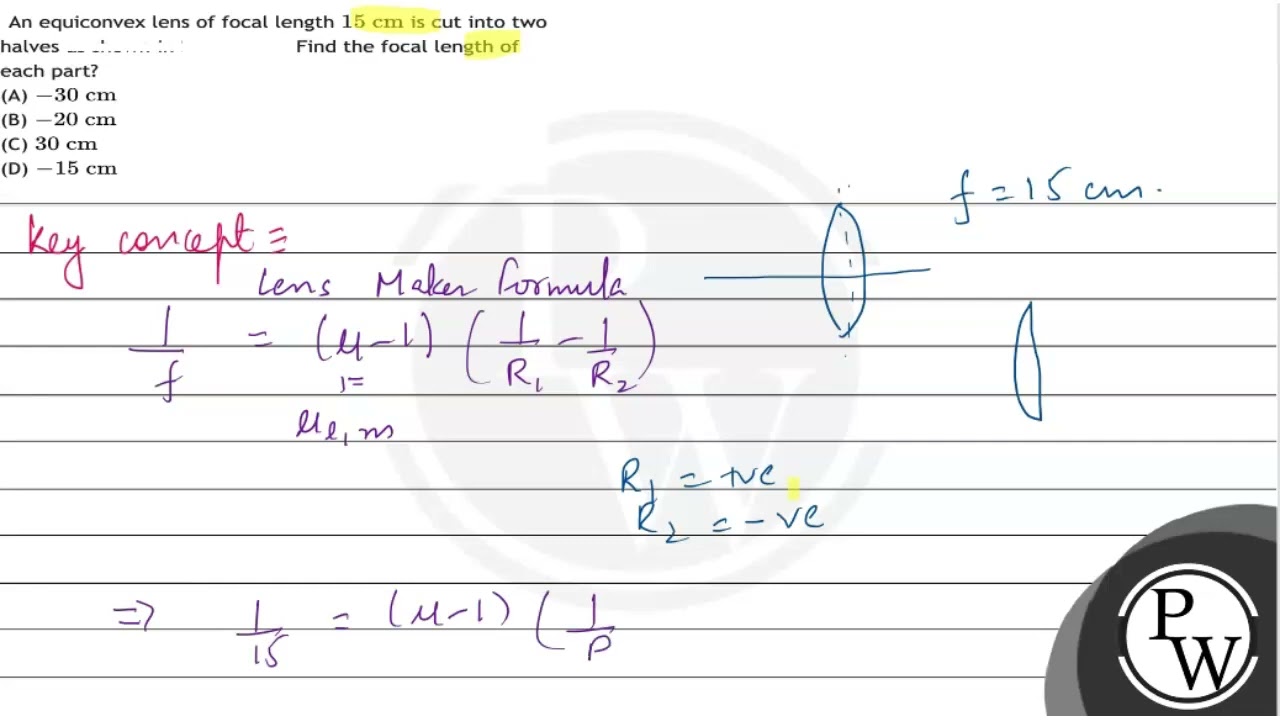 An equiconvex lens of focal length 15 cm is cut into two
halves Find the focal length of
each part?
(A) −30 cm
(B) −20 cm
(C) 30 cm
(D) −15 cm
f = 15 cm.
Key concept =
Lens Maker Formula
1/f = (μ-1) (1/R1 - 1/R2)
μl,m
R1 = +ve
R2 = -ve
⇒ 1/15 = (μ-1) (1/
P
W